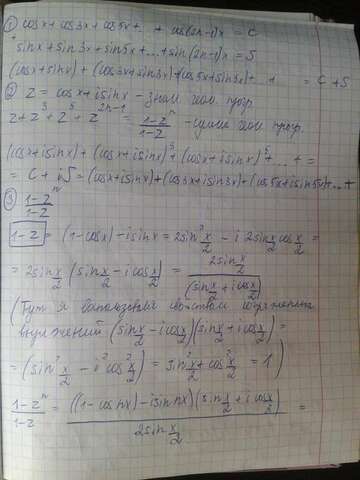 ① cosx + cos3x + cos5x + + cos(2n-1)x = C
+ sinx + sin3x + sin5x + ... + sin(2n-1)x = S
(cosx + sinx) + (cos3x + sin3x) + (cos5x + sin5x) + + = C + S
② z = cosx + isinx - знам геом прогр.
z + z³ + z⁵ + z²ⁿ⁻¹ = (1-zⁿ)/(1-z) - сумма геом прогр.
(cosx + isinx) + (cosx + isinx)³ + (cosx + isinx)⁵ + ... + =
= C + iS = (cosx + isinx) + (cos3x + isin3x) + (cos5x + isin5x) + ... +
③ (1-zⁿ)/(1-z)
1-z = (1-cosx) - isinx = 2sin² x/2 - i 2sin x/2 cos x/2 =
= 2sin x/2 (sin x/2 - i cos x/2) = 2sin x/2 / (sin x/2 + i cos x/2)
(Тут я
(sin x/2 - i cos x/2)(sin x/2 + i cos x/2) =
= (sin² x/2 - i² cos² x/2) = sin² x/2 + cos² x/2 = 1)
(1-zⁿ)/(1-z) = ((1-cos nx) - isin nx)(sin x/2 + i cos x/2) / 2sin x/2 =